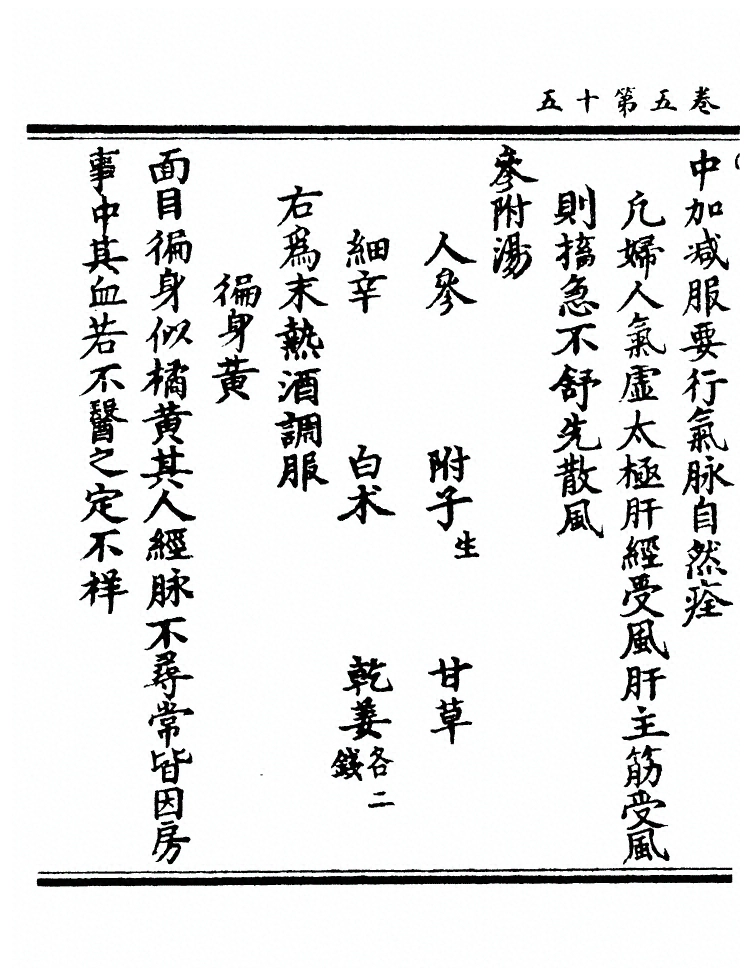 卷五第十五
中加减服要行氣脉自然痊
凢婦人氣虛太極肝經受風肝主筋受風
則搐急不舒先散風
參附湯
人參　附子生　甘草
細辛　白术　乾姜各二錢
右爲末熱酒調服
徧身黄
面目徧身似橘黄其人經脉不尋常皆因房
事中其血若不醫之定不祥